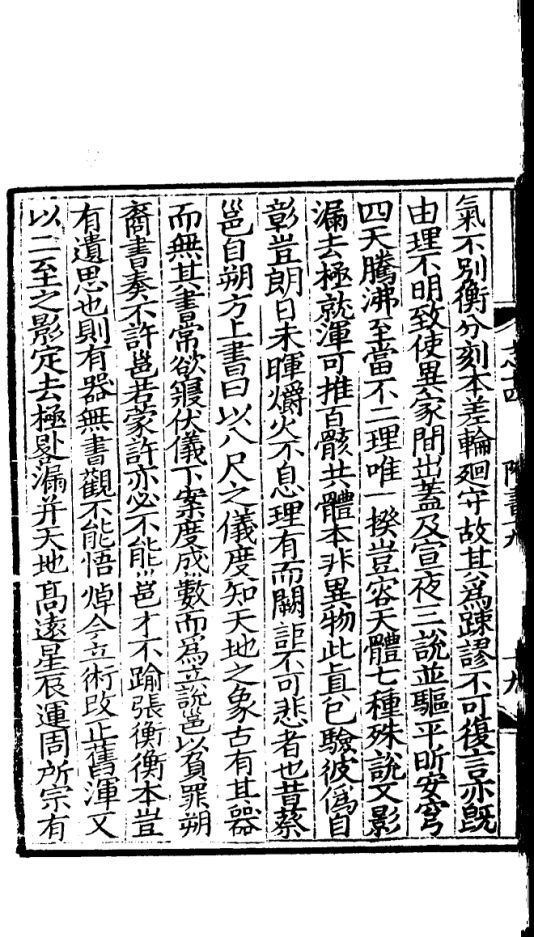 氣不別衡分刻本差輪廻守故其為踈謬不可復言亦既
由理不明致使異家間出蓋及宣夜三說並驅平昕安穹
四天騰沸至當不二理唯一揆豈容天體七種殊說又影
漏去極就渾可推百骸共體本非異物此真已驗彼偽自
彰豈朗日未暉爝火不息理有而闕詎不可悲者也昔蔡
邕自朔方上書曰以八尺之儀度知天地之象古有其器
而無其書常欲寢伏儀下案度成數而為立說邕以負罪朔
裔書奏不許邕若蒙許亦必不能邕才不踰張衡衡本豈
有遺思也則有器無書觀不能悟焯今立術改正舊渾又
以二至之影定去極晷漏并天地高遠星辰運周所宗有